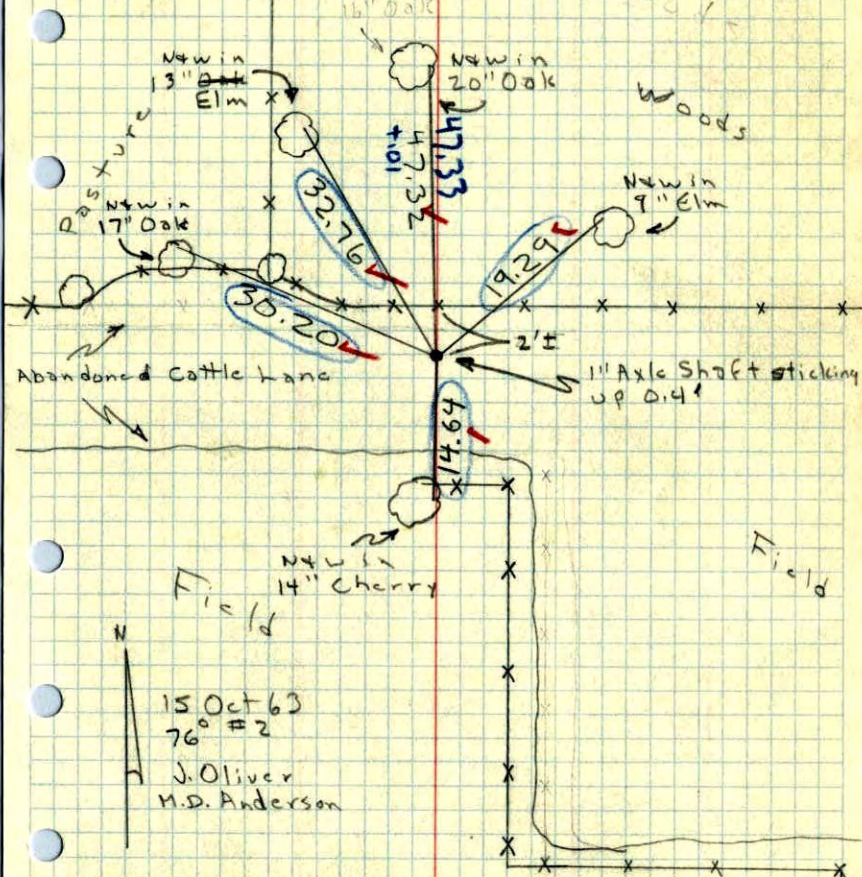 16" Oak
N&W in
13" Oak
Elm
N&W in
20" Oak
Woods
Pasture
47.33
47.32
+.01
N&W in
17" Oak
N&W in
9" Elm
32.76
19.29
30.20
2'±
Abandoned Cattle Lane
1" Axle Shaft sticking
up 0.4'
14.64
N&W in
14" Cherry
Field
Field
N
15 Oct 63
76° #2
J. Oliver
M.D. Anderson